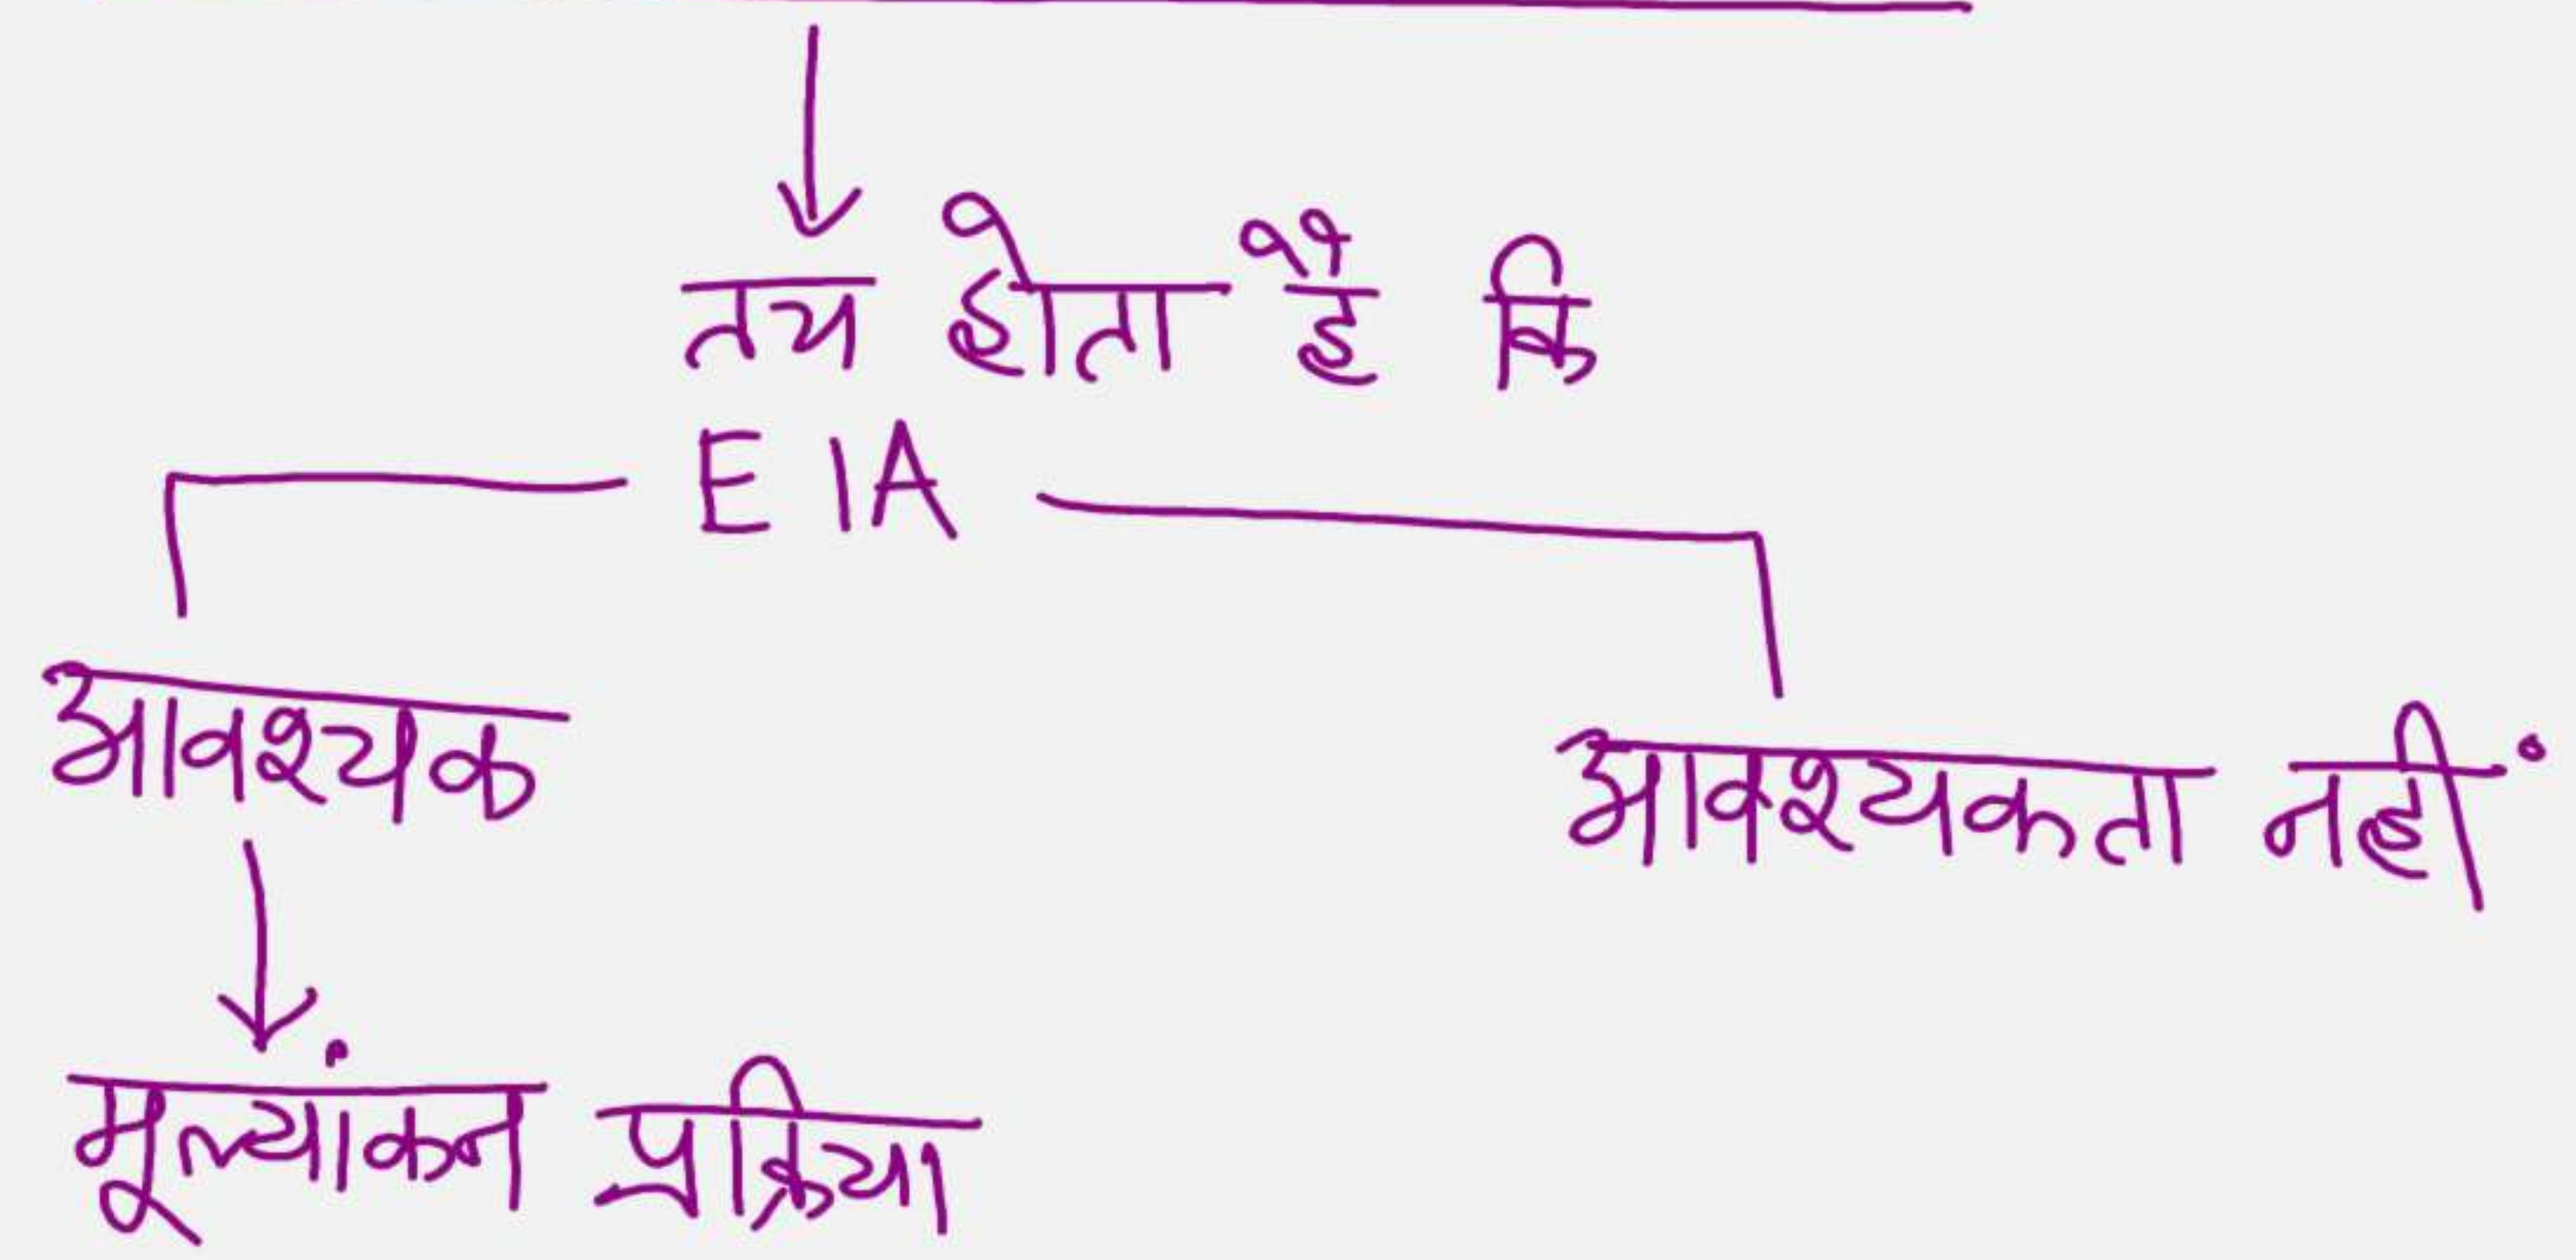 तय होता है कि
EIA
आवश्यक
आवश्यकता नहीं
मूल्यांकन प्रक्रिया